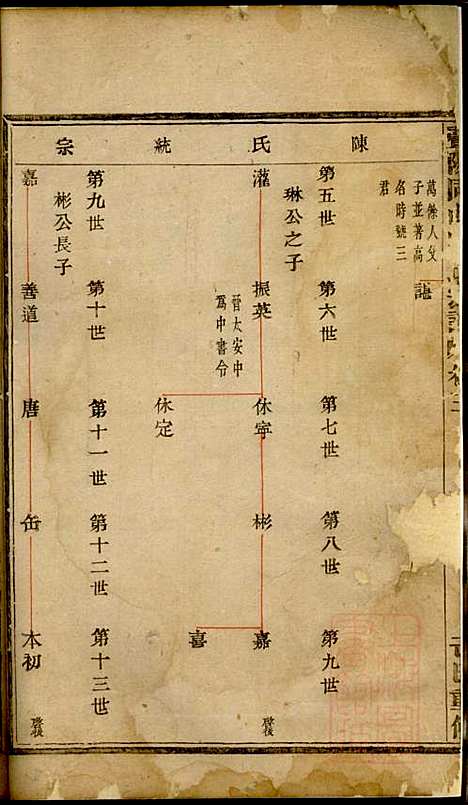 陳氏統宗
萬餘人父
子並著高
名時號三
君
諶
第五世
琳公之子
第六世
第七世
第八世
第九世
灌
振英
晉太安中
爲中書令
休寧
彬
嘉
啓後
休定
喜
第九世
彬公長子
第十世
第十一世
第十二世
第十三世
嘉
善道
唐
岳
本初
啓後